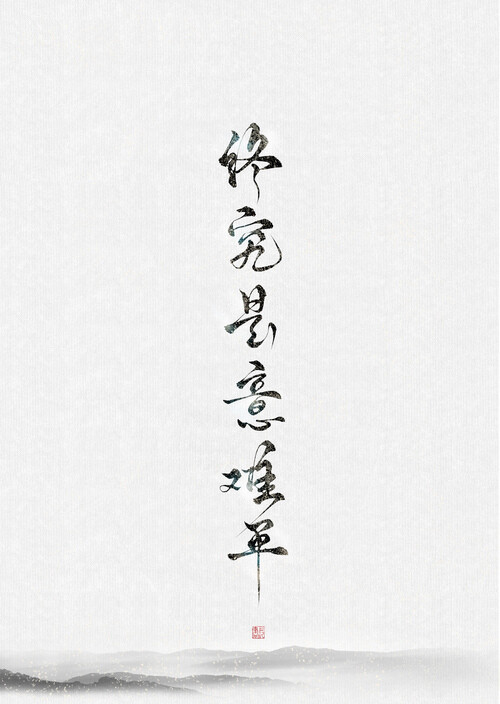 终究是意难平